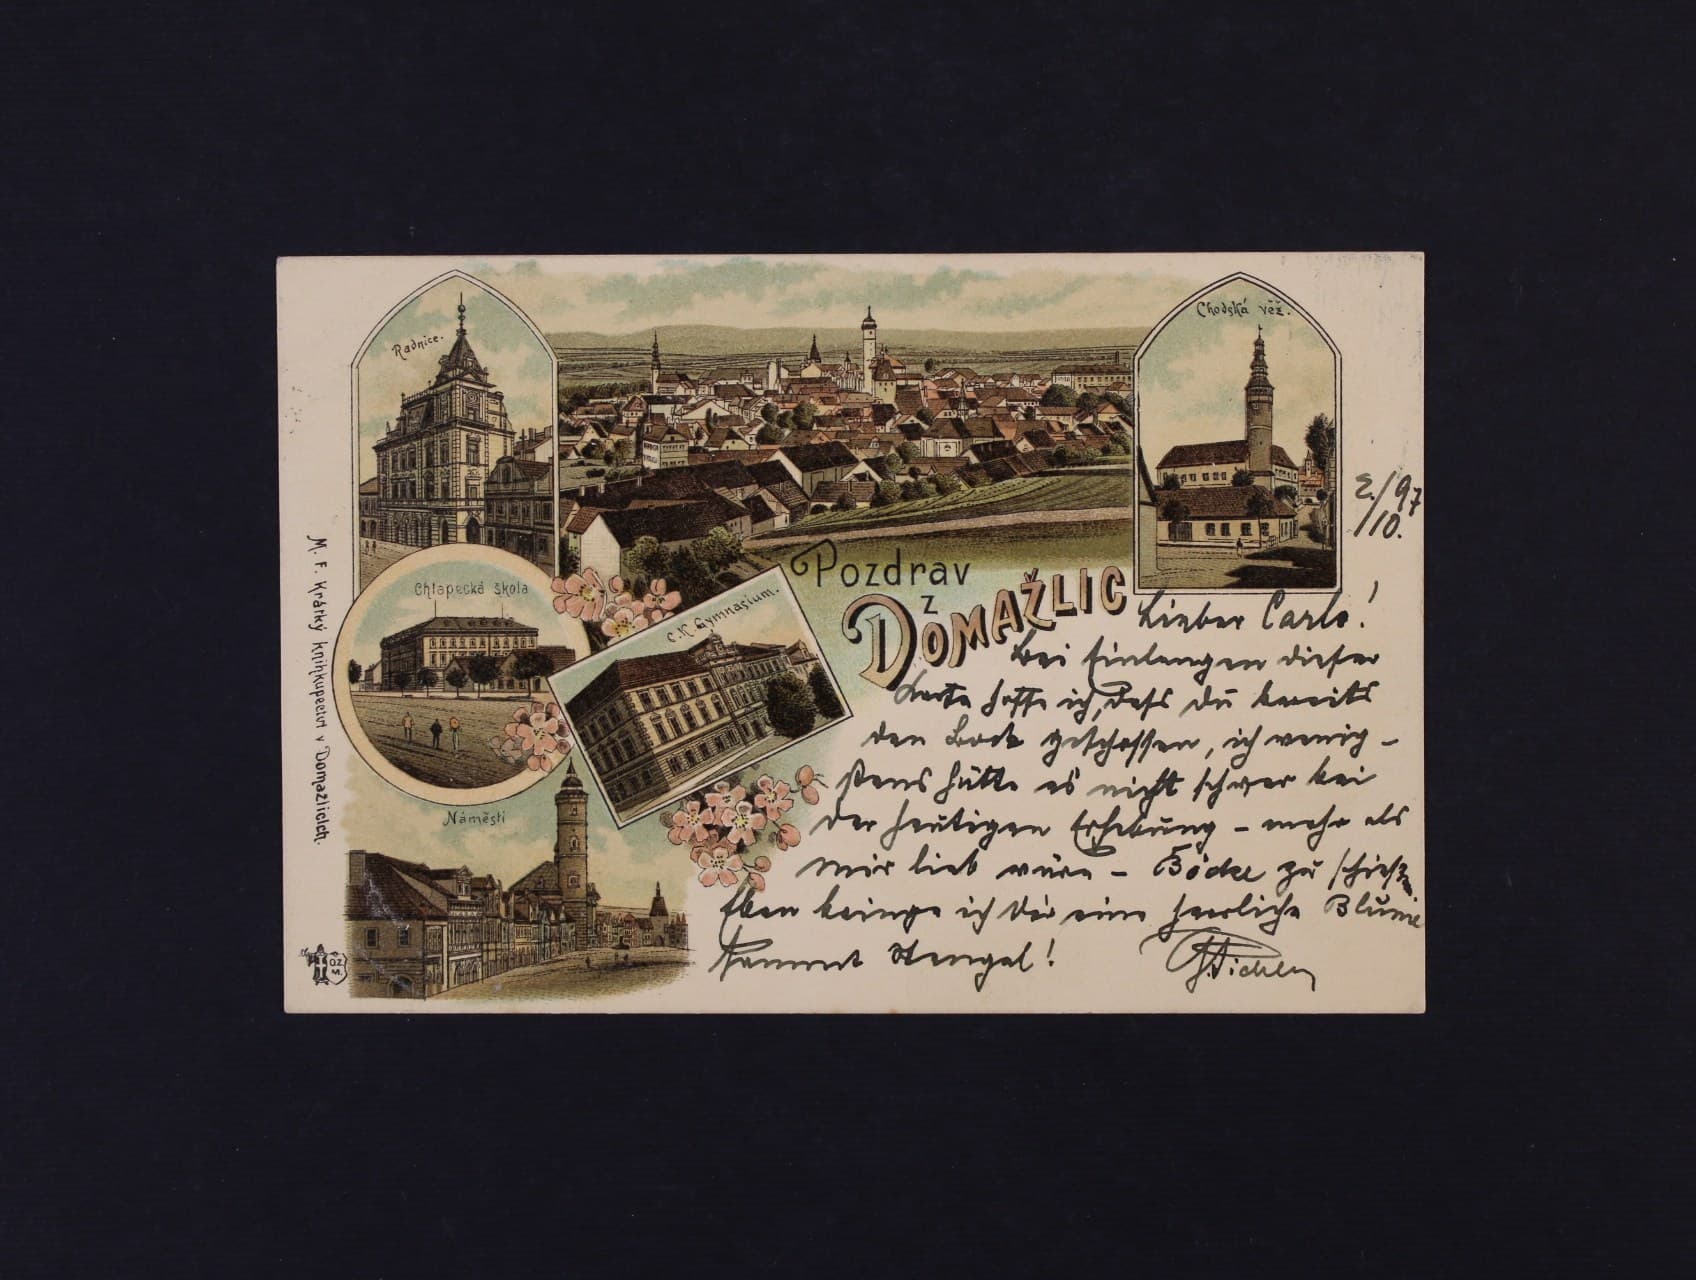 Radnice.
Chodská věž.
2./10. 97
Chlapecká škola
C. K. Gymnasium.
Náměstí
Pozdrav
z
DOMAŽLIC
M. F. Krátký knihkupectví v Domažlicích.
Lieber Carlo!
Bei Einlangen dieser
Karte hoffe ich, dass du bereits
den Bock geschossen, ich wenig-
stens hätte es nicht schwer bei
der heutigen Erhebung – mehr als
mir lieb wäre – Böcke zu schießen
Eben bringe ich Dir eine herrliche Blume
sammt Stengel!
Pichler